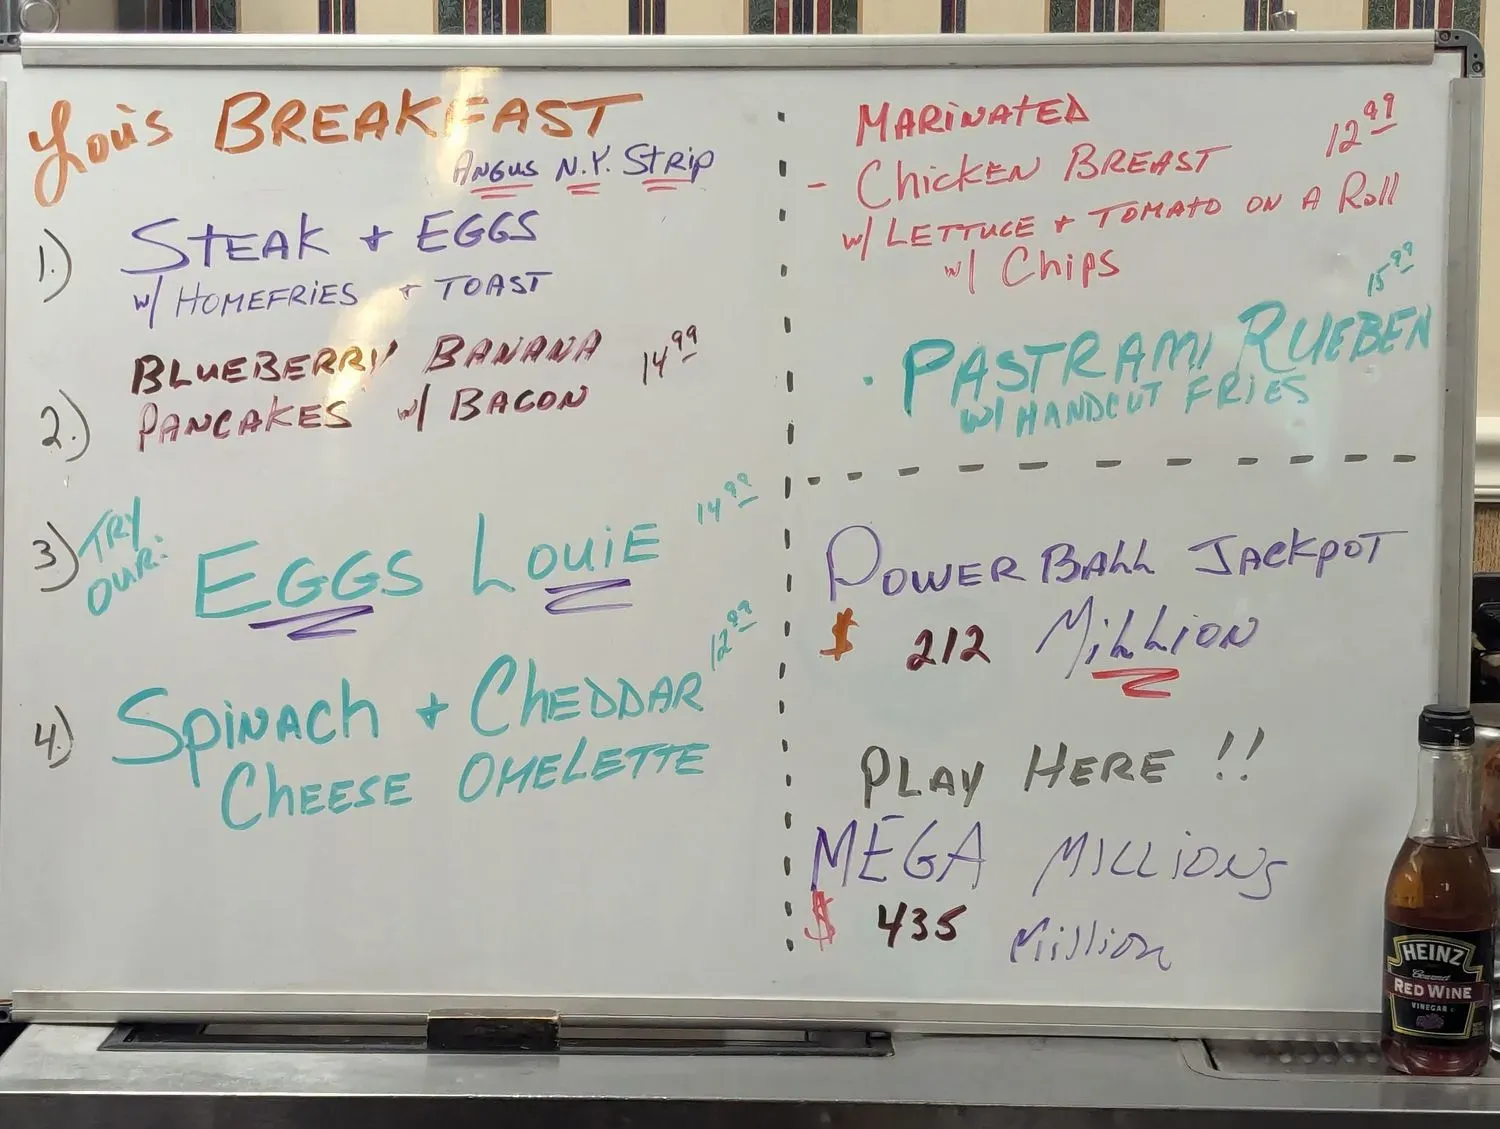 Lou's BREAKFAST
ANGUS N.Y. STRIP
1.) STEAK + EGGS
w/ HOMEFRIES + TOAST
2.) BLUEBERRY BANANA 14.99
PANCAKES w/ BACON
3.) TRY OUR: EGGS LOUIE 14.99
4.) SPINACH + CHEDDAR 12.99
CHEESE OMELETTE
MARINATED
- CHICKEN BREAST 12.99
w/ LETTUCE + TOMATO ON A Roll
w/ Chips
· PASTRAMI RUEBEN 15.99
W/ HANDCUT FRIES
POWERBALL JACKPOT
$ 212 MiLLiON
PLAY HERE !!
MEGA MILLIONS
$ 435 Million
HEINZ
Gourmet
RED WINE
VINEGAR